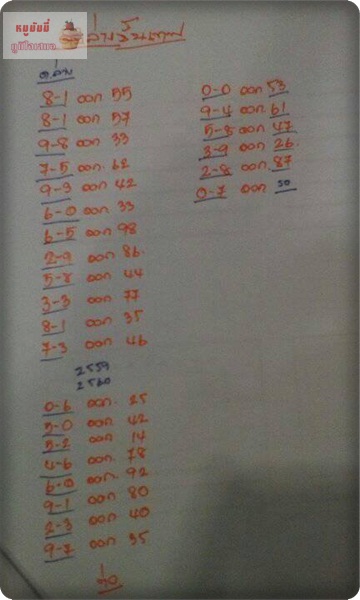 หมูบินมี่
ภูมิใจเสนอ...
8-1 ออก 55
8-1 ออก 57
9-8 ออก 33
7-5 ออก. 62
9-9 ออก 42
6-0 ออก 33
6-5 ออก 98
2-9 ออก 86.
5-8 ออก 44
3-3 ออก 77
8-1 ออก 35
7-3 ออก 46
2559
2560
0-6 ออก. 25
5-0 ออก 42
5-2 ออก 14
4-6 ออก. 78
6-0 ออก. 92
9-1 ออก 80
2-3 ออก 40
9-7 ออก 35
0-0 ออก 53
9-4 ออก. 61
5-8 ออก 47
3-9 ออก 26.
2-8 ออก. 87
0-7 ออก 50